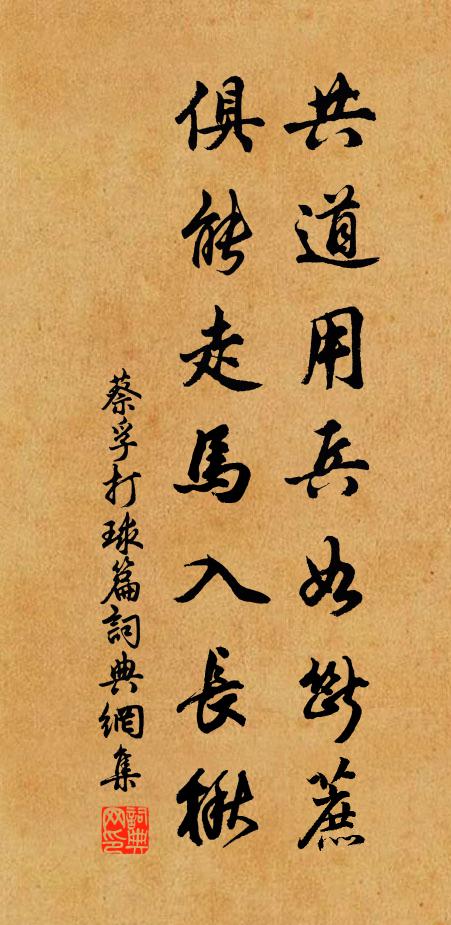 共道用兵如斷蔗
俱能走馬入長楸
蔡孚打球篇詞典網集
詞典網印